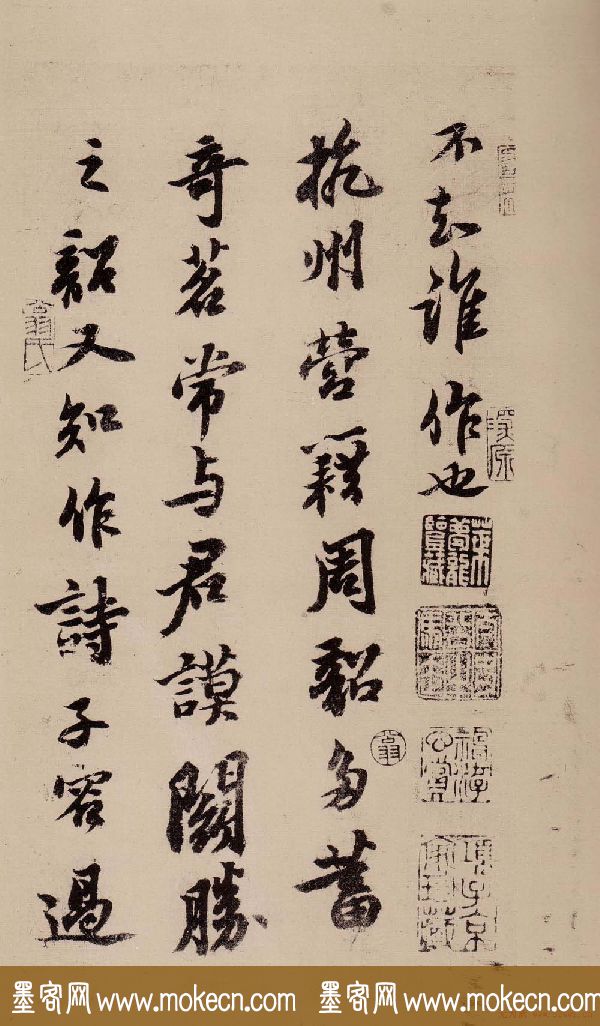 不知誰作也
杭州營籍周韶多蓄
奇茗常与君謨闘勝
之韶又知作詩子容過
墨客网 www.mokecn.com 墨客网 www.mokecn.com